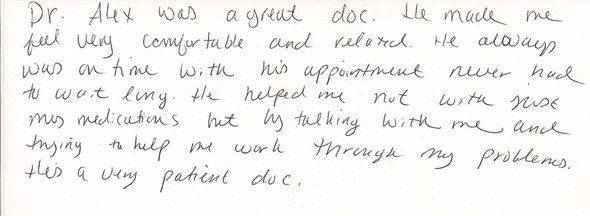 Dr. Alex was a great doc. He made me
feel very comfortable and relaxed. He always
was on time with his appointment never had
to wait long. He helped me not with just
my medications but by talking with me and
trying to help me work through my problems.
He's a very patient doc.